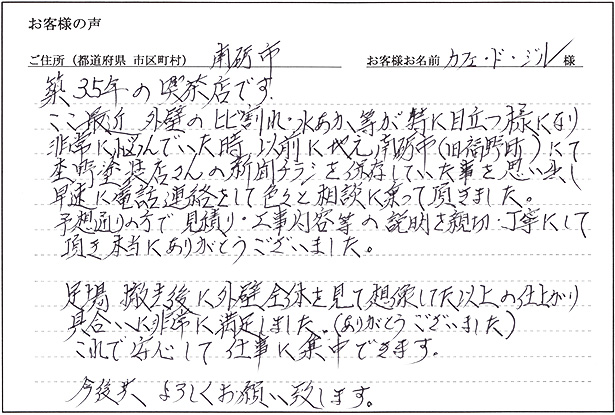 お客様の声
ご住所（都道府県 市区町村） 南砺市 お客様お名前 カフェ・ド・ジル 様
築35年の喫茶店です.
ここ最近 外壁のヒビ割れ・水あか、等が特に目立つ様になり
非常に悩んでいた時 以前に地元南砺市(旧福野町)にて
塗装店さんの新聞チラシを保存していた事を思い出し
早速に電話連絡をして色々と相談に乗って頂きました。
予想通りの方で見積り・工事内容等の説明を親切・丁寧にして
頂き本当にありがとうございました。
足場 撤去後に外壁全体を見て想像してた以上の仕上がり
具合いに非常に満足しました。(ありがとうございました)
これで安心して仕事に集中できます。
今後共、よろしくお願い致します。